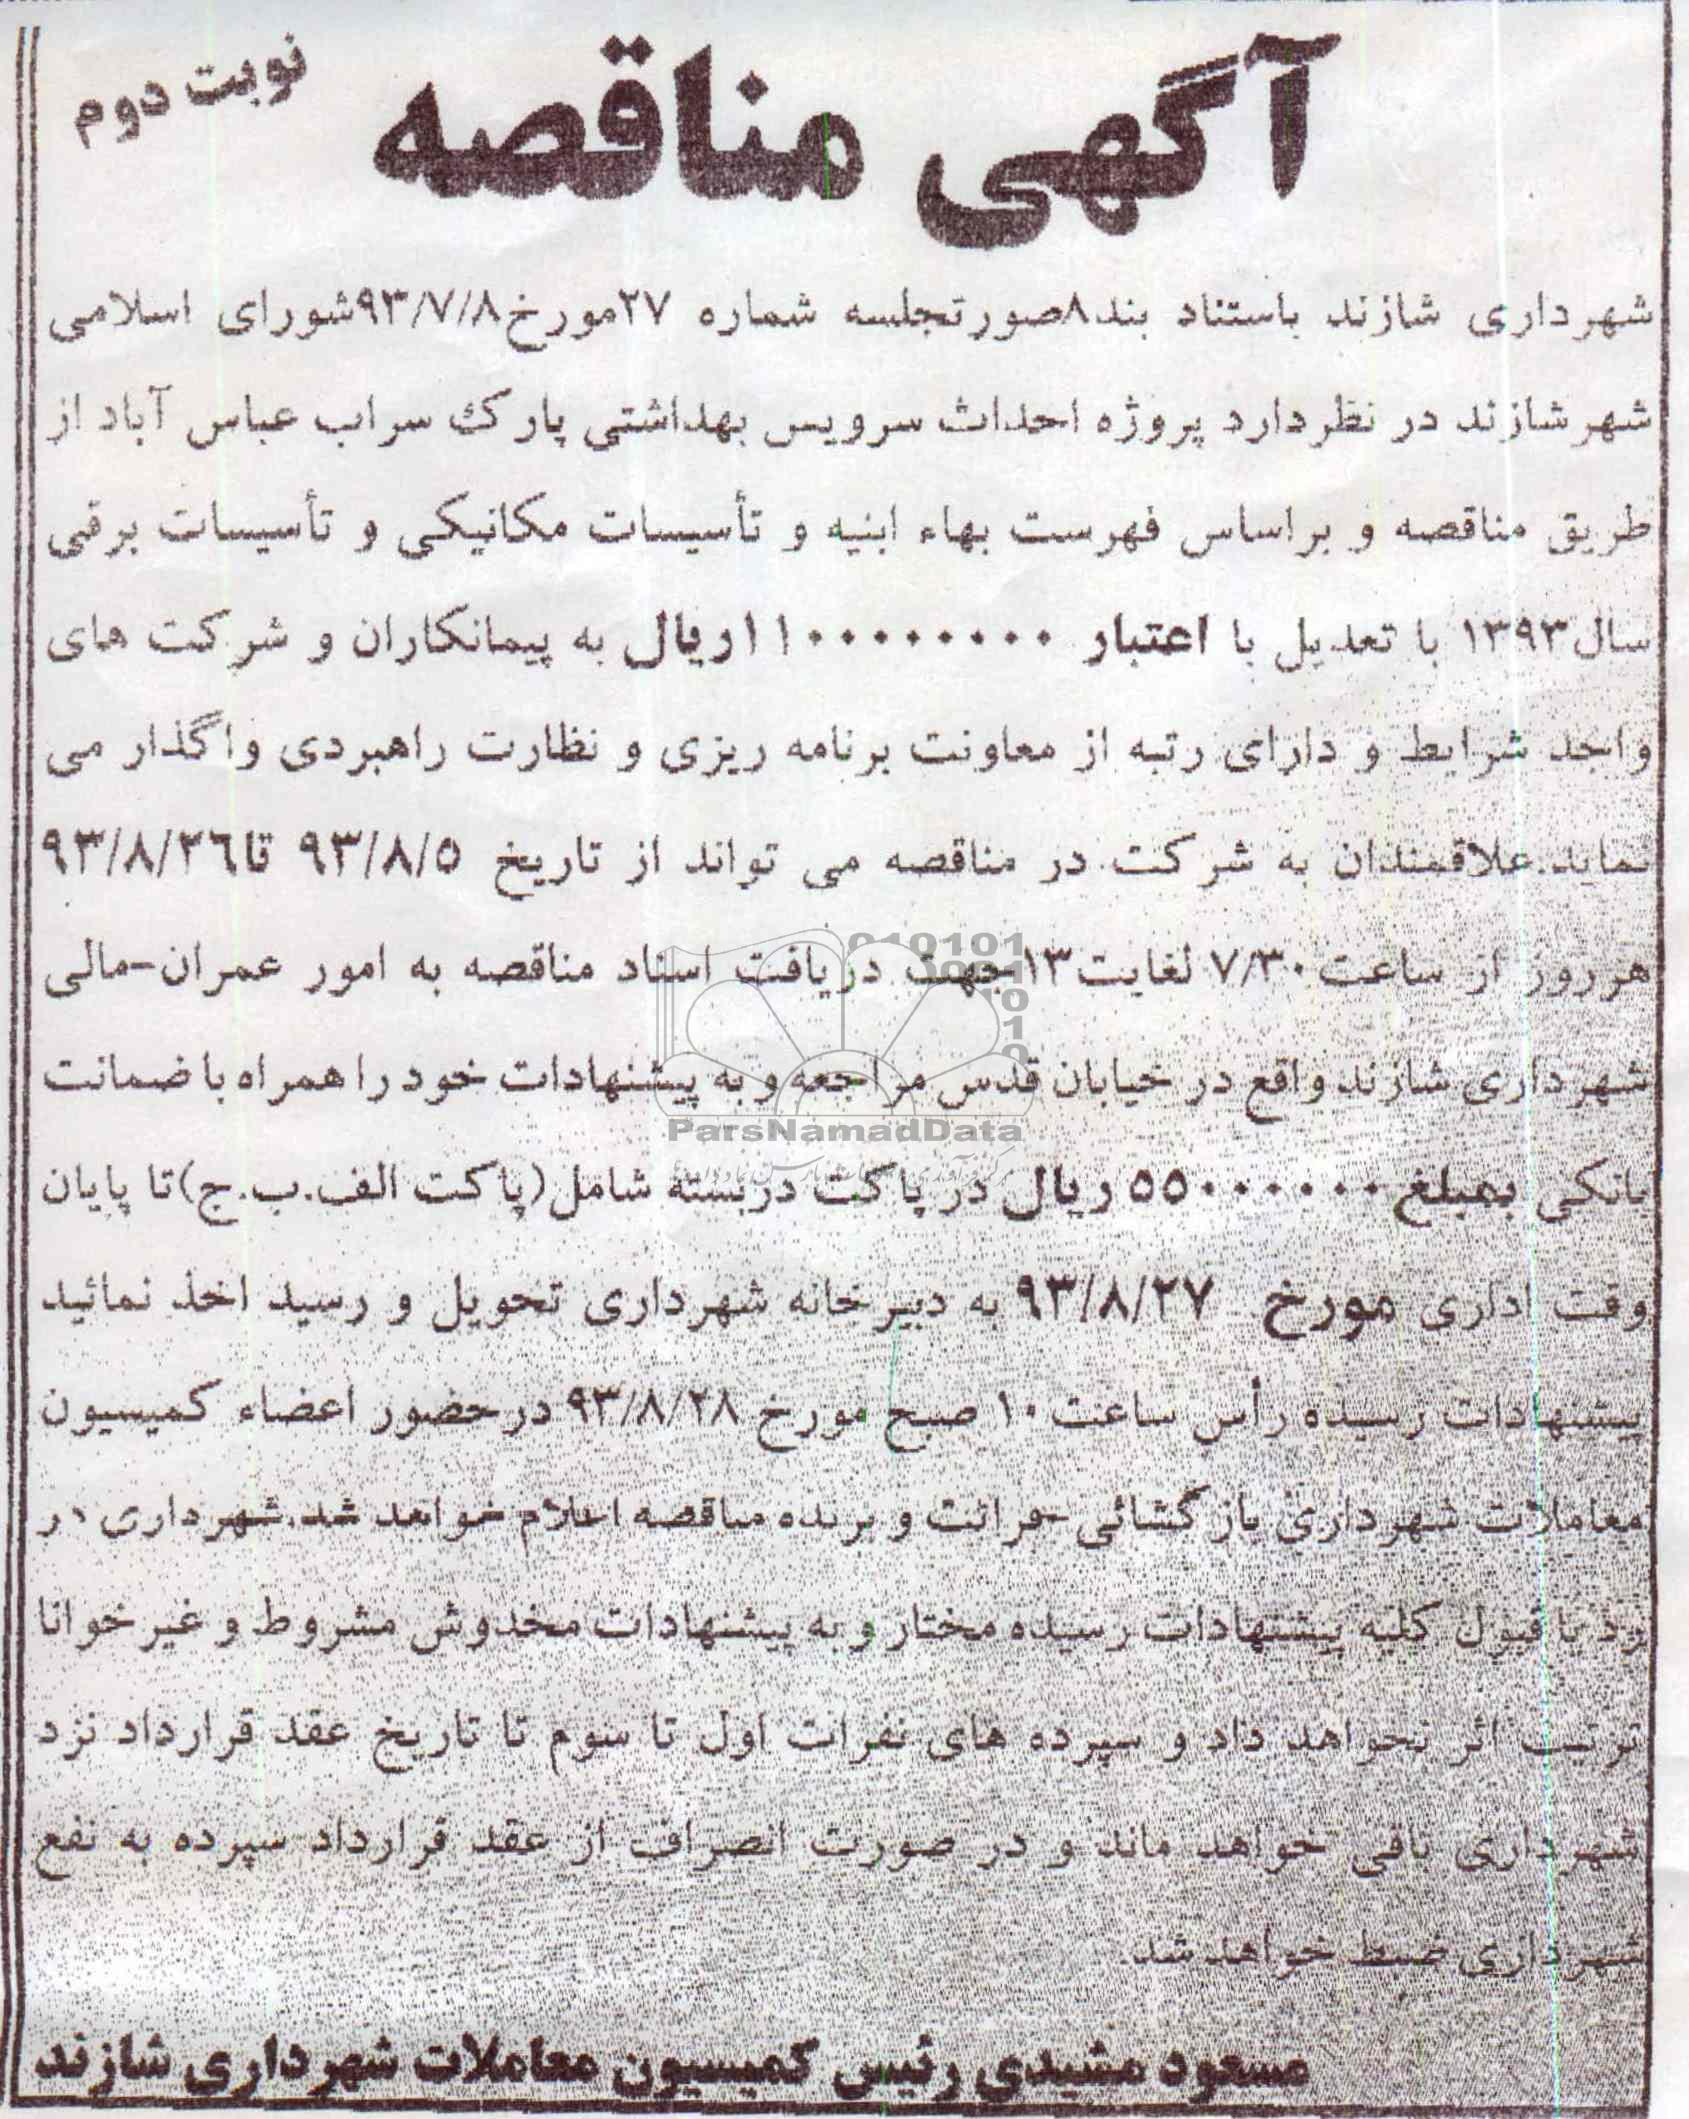 آگهی مناقصه
نوبت دوم
شهرداری شازند باستناد بند۸صورتجلسه شماره ۲۷مورخ۹۳/۷/۸شورای اسلامی
شهرشازند در نظردارد پروژه احداث سرویس بهداشتی پارک سراب عباس آباد از
طریق مناقصه و براساس فهرست بهاء ابنیه و تأسیسات مکانیکی و تأسیسات برقی
سال۱۳۹۳ با تعدیل با اعتبار ۱۱۰۰۰۰۰۰۰۰ریال به پیمانکاران و شرکت های
واجد شرایط و دارای رتبه از معاونت برنامه ریزی و نظارت راهبردی واگذار می
نماید.علاقمندان به شرکت در مناقصه می تواند از تاریخ ۹۳/۸/۵ تا۹۳/۸/۲۶
هرروز از ساعت۷/۳۰ لغایت۱۳جهت دریافت اسناد مناقصه به امور عمران-مالی
شهرداری شازند واقع در خیابان قدس مراجعه و به پیشنهادات خود را همراه با ضمانت
بانکی بمبلغ۵۵۰۰۰۰۰۰ ریال در پاکت دربسته شامل(پاکت الف.ب.ج)تا پایان
وقت اداری مورخ ۹۳/۸/۲۷ به دبیرخانه شهرداری تحویل و رسید اخذ نمائید
پیشنهادات رسیده رأس ساعت۱۰ صبح مورخ ۹۳/۸/۲۸ درحضور اعضاء کمیسیون
معاملات شهرداری بازگشائی-قرائت و برنده مناقصه اعلام خواهد شد.شهرداری در
رد یا قبول کلیه پیشنهادات رسیده مختار و به پیشنهادات مخدوش مشروط و غیرخوانا
ترتیب اثر نخواهد داد و سپرده های نفرات اول تا سوم تا تاریخ عقد قرارداد نزد
شهرداری باقی خواهد ماند و در صورت انصراف از عقد قرارداد سپرده به نفع
شهرداری ضبط خواهد شد.
مسعود مشیدی رئیس کمیسیون معاملات شهرداری شازند
ParsNamadData